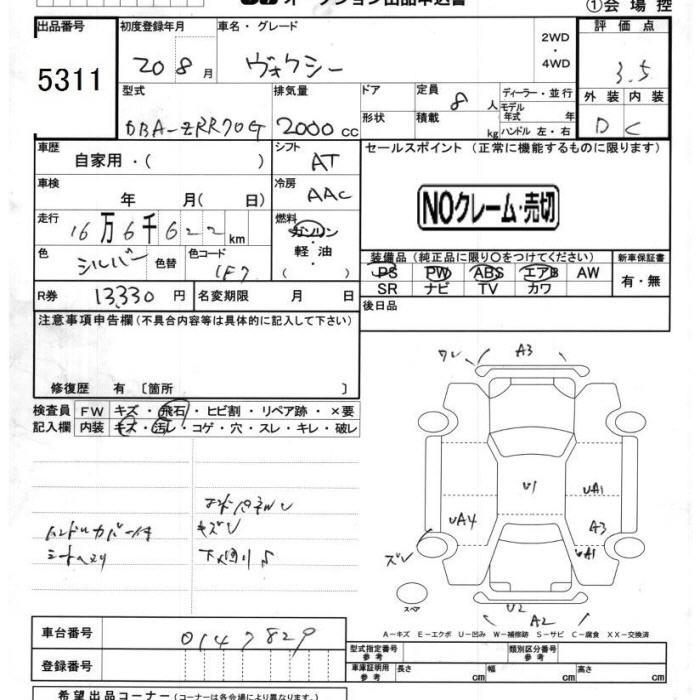 オークション出品申込書
①会場控
出品番号 初度登録年月 車名・グレード 2WD・4WD 評価点
5311 20 8月 ヴォクシー 3.5
型式 排気量 ドア 定員 8人 ディーラー・並行 外装 内装
DBA-ZRR70G 2000cc 形状 積載 kg モデル年式 年 ハンドル 左・右 D C
車歴 自家用・( ) シフト AT セールスポイント (正常に機能するものに限ります)
車検 年 月( 日) 冷房 AAC NOクレーム・売切
走行 16万6千622km 燃料 ガソリン 軽油 ( )
色 シルバー 色替 色コード 1F7 装備品 (純正品に限り〇をつけてください) 新車保証書
PS PW ABS エアB AW 有・無
SR ナビ TV カワ
R券 13,330円 名変期限 月 日 後日品
注意事項申告欄 (不具合内容等は具体的に記入して下さい)
修復歴 有 〔箇所 〕
検査員 FW キズ・飛石・ヒビ割・リペア跡・×要
記入欄 内装 キズ・汚レ・コゲ・穴・スレ・キレ・破レ
ワレ A3
U1 UA1
UA4 A3
ズレ UA1
キズ
ハンドルカバー付
スペア U2 A2
A-キズ E-エクボ U-凹み W-補修跡 S-サビ C-腐食 XX-交換済
車台番号 0147829 型式指定番号 参考 類別区分番号 参考
登録番号 車庫証明用 参考 長さ cm 幅 cm 高さ cm
希望出品コーナー (コーナーは各会場により異なります。)